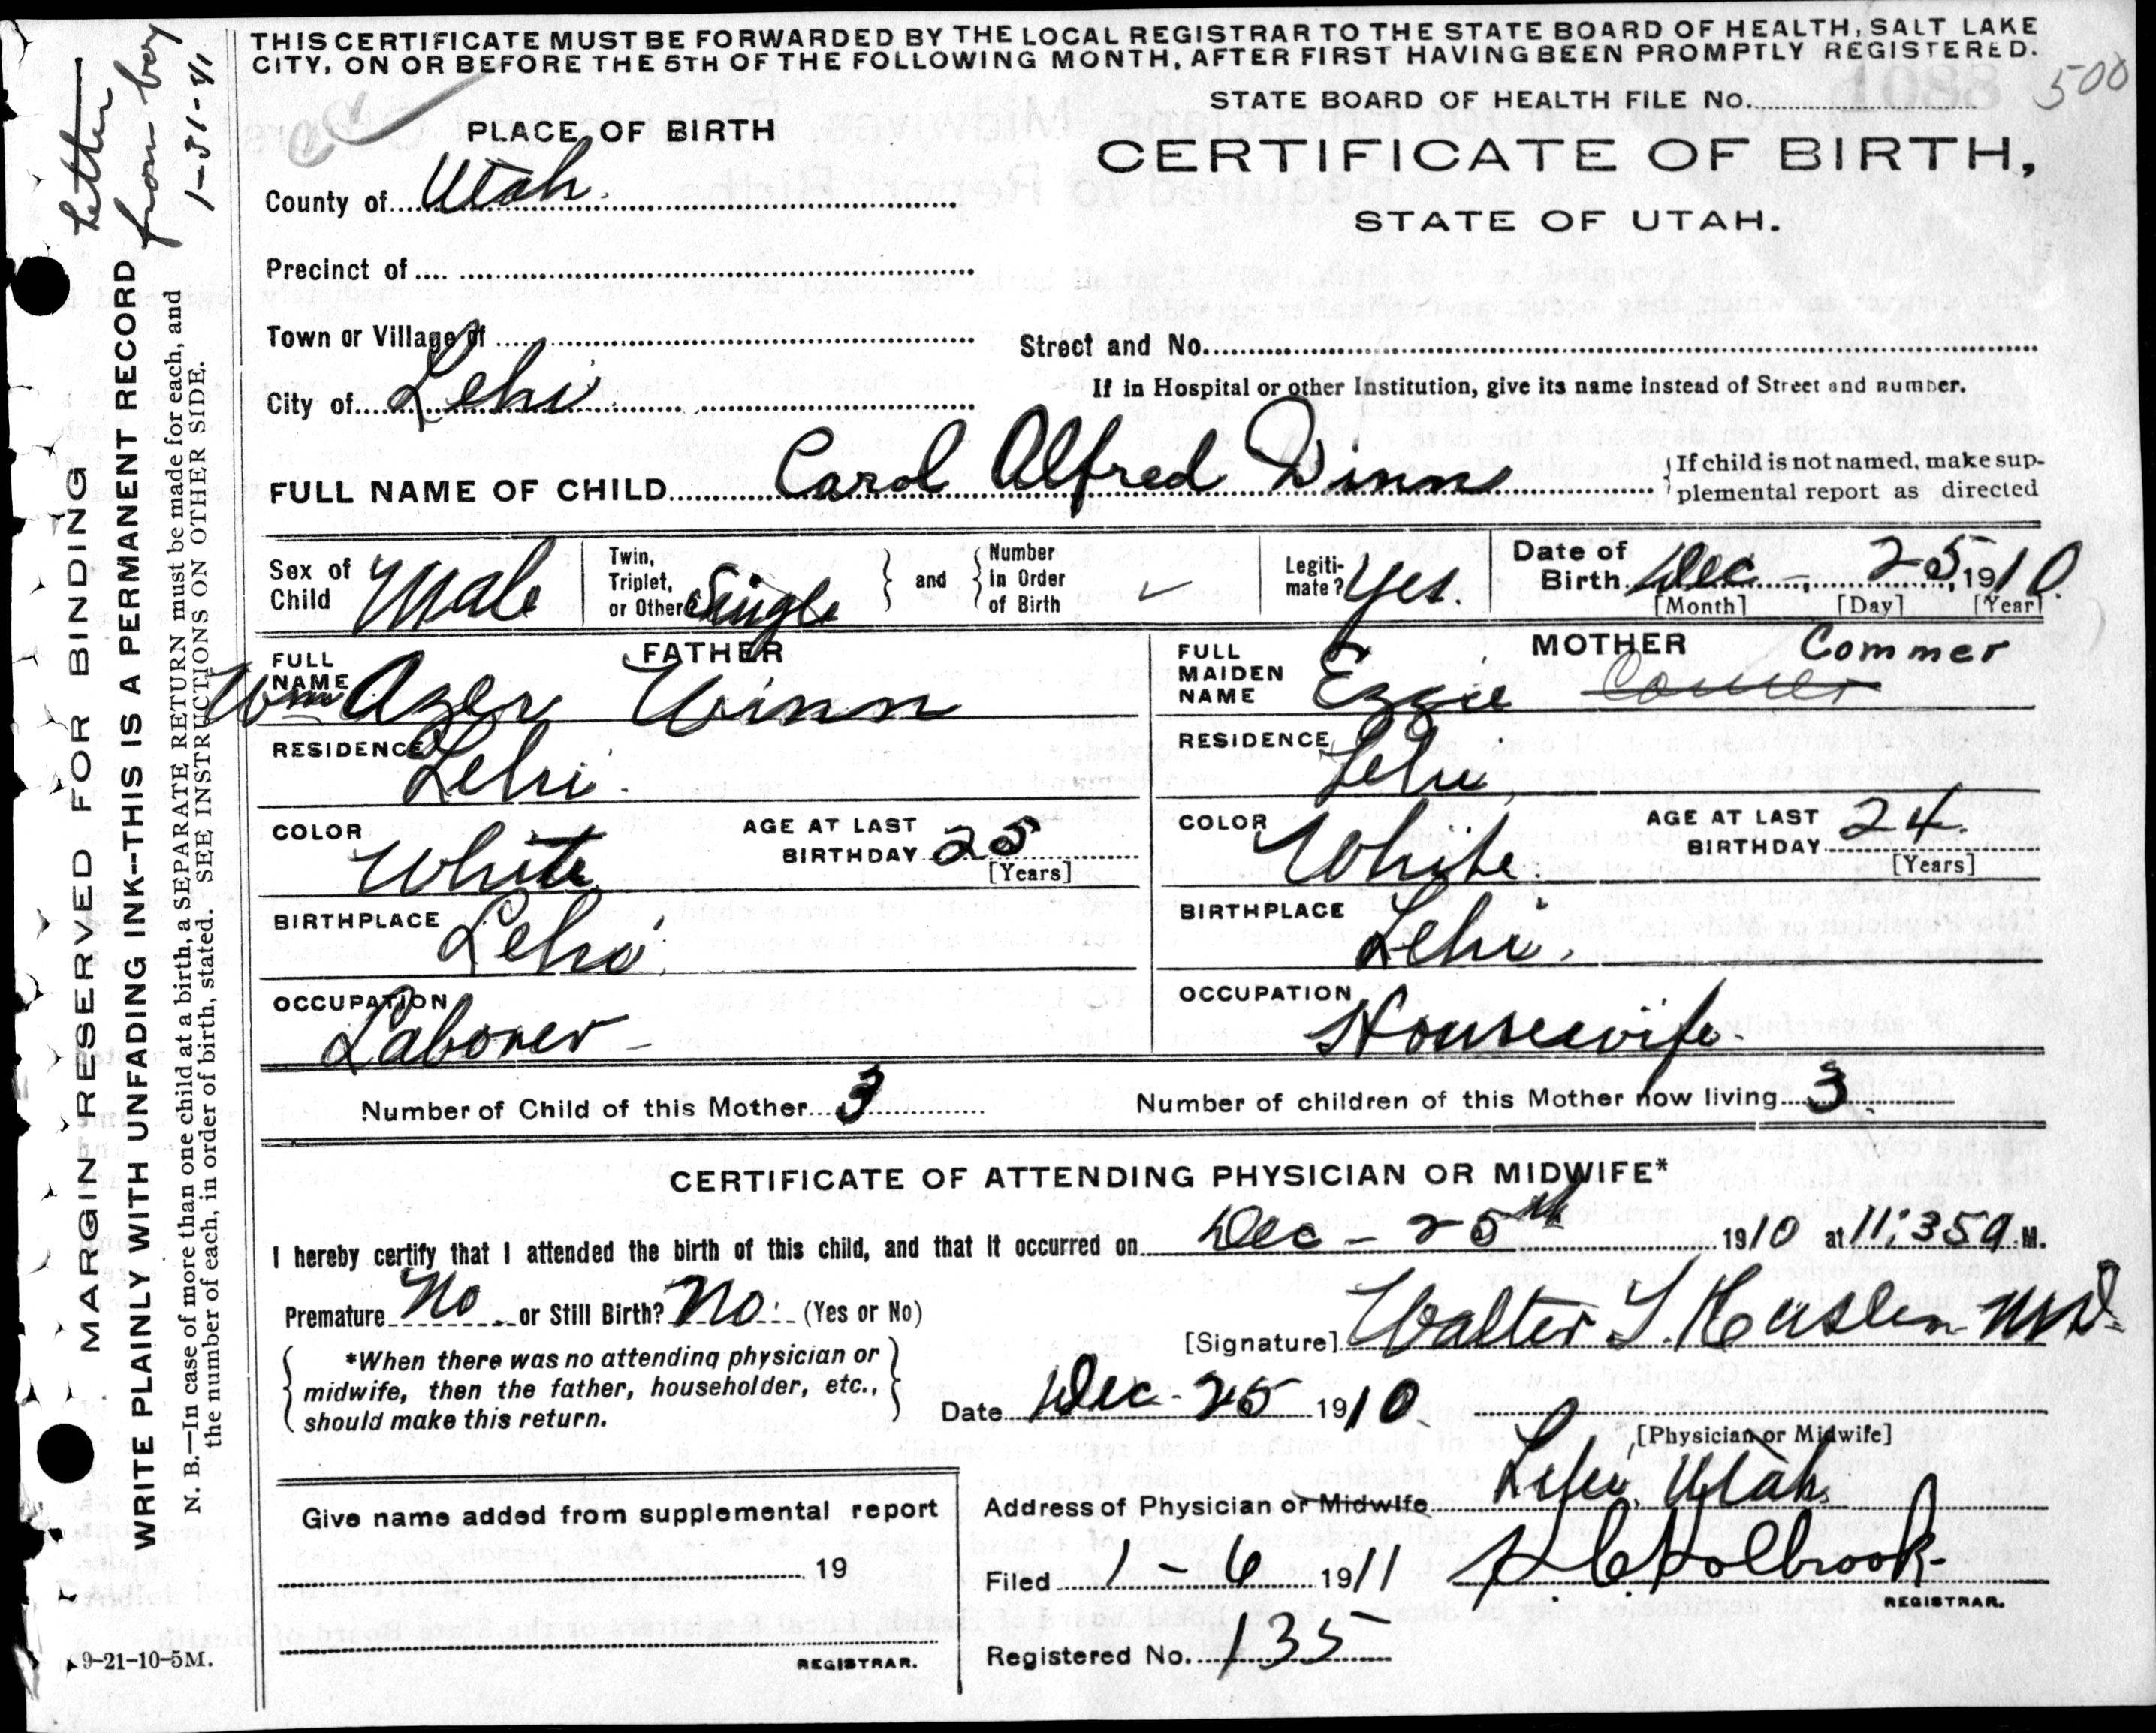 THIS CERTIFICATE MUST BE FORWARDED BY THE LOCAL REGISTRAR TO THE STATE BOARD OF HEALTH, SALT LAKE
CITY, ON OR BEFORE THE 5TH OF THE FOLLOWING MONTH, AFTER FIRST HAVING BEEN PROMPTLY REGISTERED.
STATE BOARD OF HEALTH FILE No. 500
PLACE OF BIRTH
CERTIFICATE OF BIRTH,
STATE OF UTAH.
County of Utah.
Precinct of
Town or Village of
Street and No.
City of Lehi
If in Hospital or other Institution, give its name instead of Street and number.
FULL NAME OF CHILD Carol Alfred Winn
If child is not named, make sup-
plemental report as directed
Sex of Child Male
Twin, Triplet, or Other Single
and
Number in Order of Birth ✓
Legiti-mate? Yes.
Date of Birth Dec - 25, 1910.
[Month] [Day] [Year]
FATHER
FULL NAME Wm Azer Winn
RESIDENCE Lehi.
COLOR White
AGE AT LAST BIRTHDAY 25
[Years]
BIRTHPLACE Lehi.
OCCUPATION
Laborer -
MOTHER
FULL MAIDEN NAME Ezzie Comer Commer
RESIDENCE Lehi,
COLOR White.
AGE AT LAST BIRTHDAY 24.
[Years]
BIRTHPLACE Lehi.
OCCUPATION
Housewife.
Number of Child of this Mother 3
Number of children of this Mother now living 3.
CERTIFICATE OF ATTENDING PHYSICIAN OR MIDWIFE*
I hereby certify that I attended the birth of this child, and that it occurred on Dec - 25th 1910 at 11:35 a. M.
Premature No or Still Birth? No. (Yes or No)
[Signature] Walter T. Hasler MD.
*When there was no attending physician or
midwife, then the father, householder, etc.,
should make this return.
Date Dec - 25 1910.
[Physician or Midwife]
Address of Physician or Midwife Lehi, Utah.
Give name added from supplemental report
19
REGISTRAR.
Filed 1 - 6 1911
Holbrook
REGISTRAR.
Registered No. 135
9-21-10-5M.
Letter
from boy
1-31-41
MARGIN RESERVED FOR BINDING
WRITE PLAINLY WITH UNFADING INK--THIS IS A PERMANENT RECORD
N. B.—In case of more than one child at a birth, a SEPARATE RETURN must be made for each, and
the number of each, in order of birth, stated. SEE INSTRUCTIONS ON OTHER SIDE.